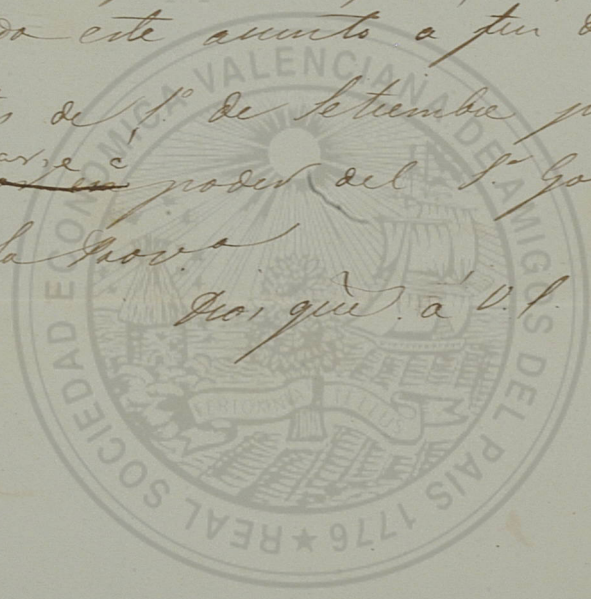 da este asunto a fin d
s de 1º de Setiembre p
arse á
poder del Sr Go
la Prova
Dios gue. á V. S.
REAL SOCIEDAD ECONOMICA VALENCIANA DE AMIGOS DEL PAIS 1776 ★
TELLUS